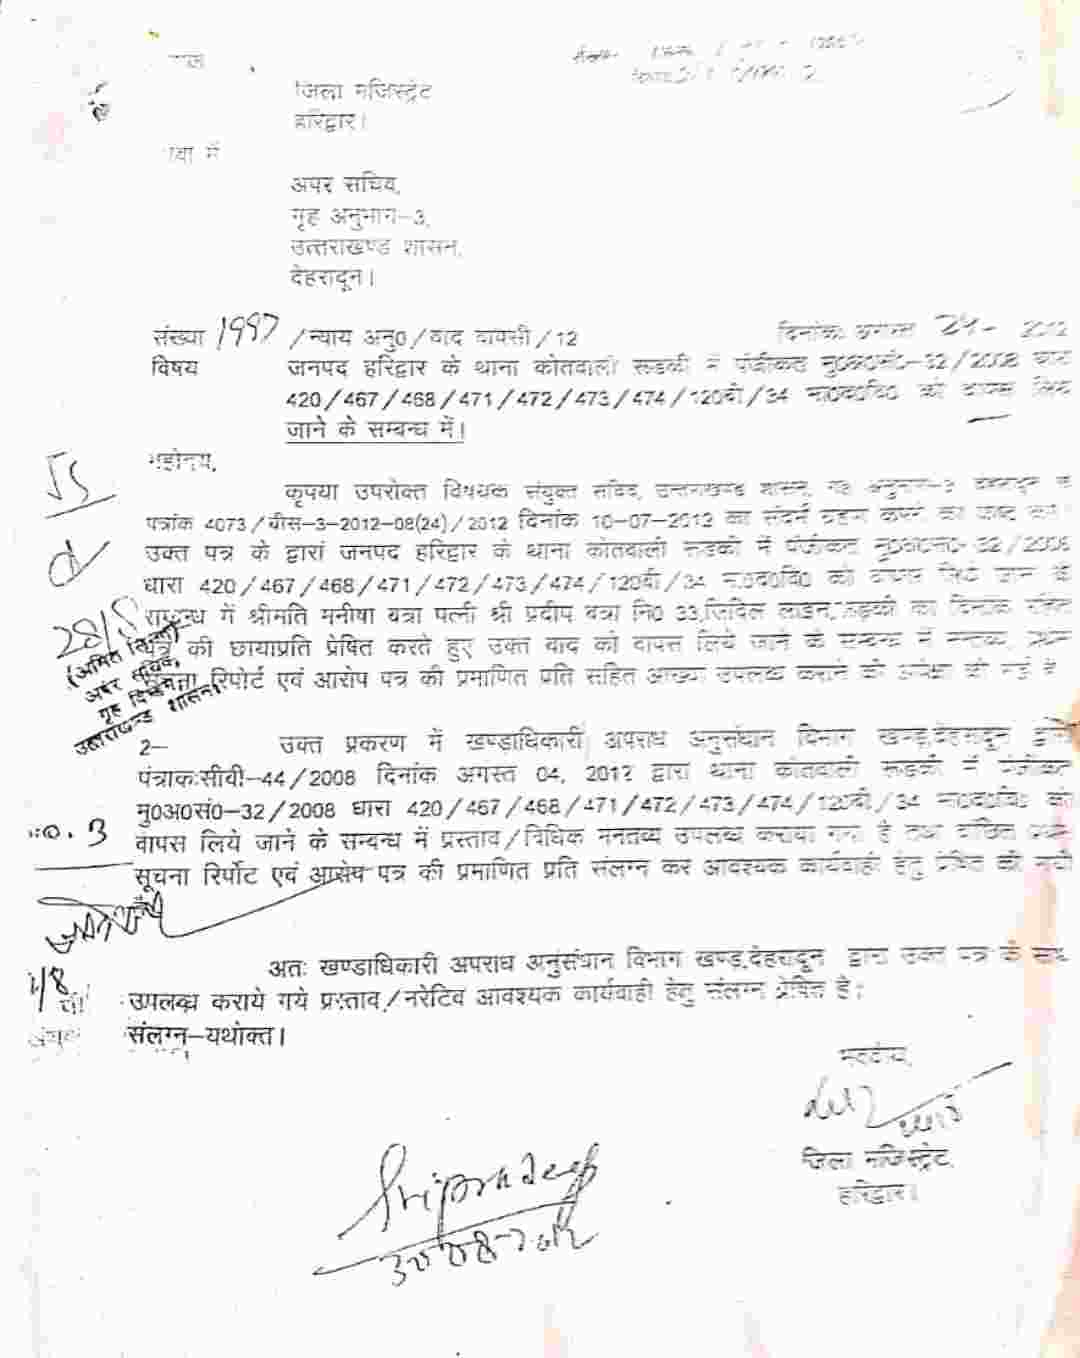 जिला मजिस्ट्रेट
हरिद्वार।
अपर सचिव,
गृह अनुभाग-3,
उत्तराखण्ड शासन,
देहरादून।
संख्या 1997 /न्याय अनु0/वाद वापसी/12 दिनांक अगस्त 24- 2012
विषय जनपद हरिद्वार के थाना कोतवाली रूडकी में पंजीकृत मु0अ0सं0-32/2008 धारा
420/467/468/471/472/473/474/120बी/34 भा0द0वि0 को वापस लिये
जाने के सम्बन्ध में।
महोदय,
कृपया उपरोक्त विषयक संयुक्त सचिव, उत्तराखण्ड शासन, गृह अनुभाग-3 देहरादून के
पत्रांक 4073/बीस-3-2012-08(24)/2012 दिनांक 10-07-2012 का संदर्भ ग्रहण करने का कष्ट करें।
उक्त पत्र के द्वारा जनपद हरिद्वार के थाना कोतवाली रूडकी में पंजीकृत मु0अ0सं0-32/2008
धारा 420/467/468/471/472/473/474/120बी/34 भा0द0वि0 को वापस लिये जाने के
सम्बन्ध में श्रीमति मनीषा बत्रा पत्नी श्री प्रदीप बत्रा नि0 33,सिविल लाइन,रूडकी का दिनांक रहित
पत्र की छायाप्रति प्रेषित करते हुए उक्त वाद को वापस लिये जाने के सम्बन्ध में मन्तव्य, प्रथम
सूचना रिपोर्ट एवं आरोप पत्र की प्रमाणित प्रति सहित आख्या उपलब्ध कराने की अपेक्षा की गई है
28/8
(अमित सिन्हा)
अपर सचिव,
गृह विभाग
उत्तराखण्ड शासन।
2- उक्त प्रकरण में खण्डाधिकारी अपराध अनुसंधान विभाग खण्ड,देहरादून द्वारा
पंत्राकःसीवी-44/2008 दिनांक अगस्त 04, 2012 द्वारा थाना कोतवाली रूडकी में पंजीकृत
मु0अ0सं0-32/2008 धारा 420/467/468/471/472/473/474/120बी/34 भा0द0वि0 को
वापस लिये जाने के सम्बन्ध में प्रस्ताव/विधिक मनतव्य उपलब्ध कराया गया है तथा वांछित प्रथम
सूचना रिर्पोट एवं आरोप पत्र की प्रमाणित प्रति संलग्न कर आवश्यक कार्यवाही हेतु प्रेषित की गयी
अतः खण्डाधिकारी अपराध अनुसंधान विभाग खण्ड,देहरादून द्वारा उक्त पत्र के साथ
उपलब्ध कराये गये प्रस्ताव/नरेटिव आवश्यक कार्यवाही हेतु संलग्न प्रेषित है।
संलग्न-यथोक्त।
भवदीय,
जिला मजिस्ट्रेट,
हरिद्वार।